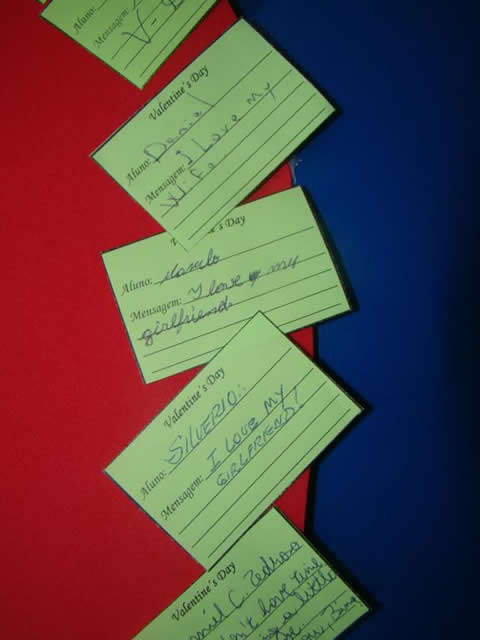 Aluno:
Mensagem: V-D
Valentine's Day
Aluno: Daniel
Mensagem: I Love My
Wife
Valentine's Day
Aluno:
Mensagem: I love my
girlfriend
Valentine's Day
Aluno: SILVERIO
Mensagem: I LOVE MY
GIRLFRIEND!
Valentine's Day
C. Pedroso
love
a little